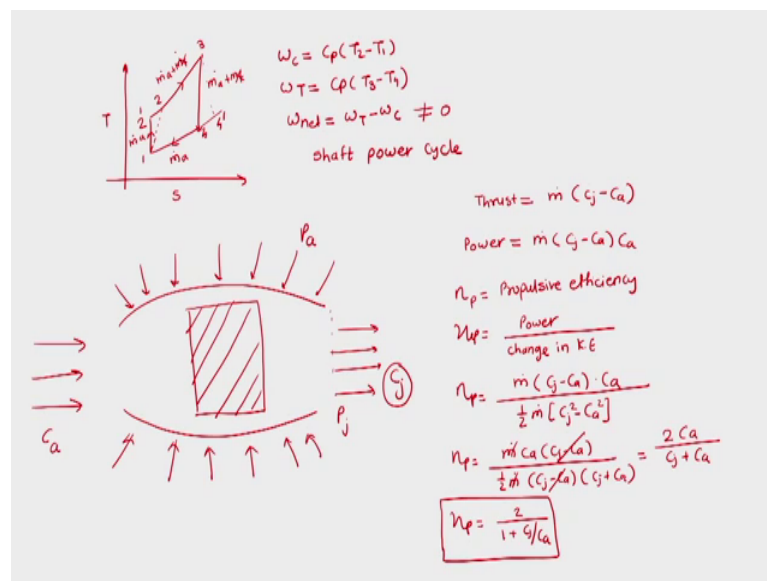 T
S
1
2
2'
3
4
4'
ṁa
ṁa+ṁf
ṁa+ṁf
ṁa
ωc = Cp(T2-T1)
ωT = Cp(T3-T4)
ωnet = ωT-ωc ≠ 0
shaft power cycle
Pa
Ca
Cj
Pj
Thrust = ṁ (Cj-Ca)
Power = ṁ(Cj-Ca)Ca
ηp = Propulsive efficiency
ηp = Power / change in KE
ηp = ṁ(Cj-Ca)·Ca / ½ṁ[Cj²-Ca²]
ηp = ṁCa(Cj-Ca) / ½ṁ(Cj-Ca)(Cj+Ca) = 2Ca / Cj+Ca
ηp = 2 / 1+Cj/Ca